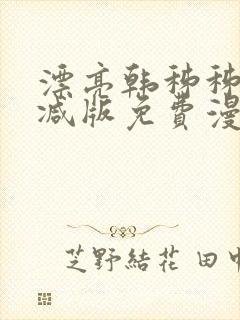 漂亮韩秭秭
减版免费漫
芝野結花 田中